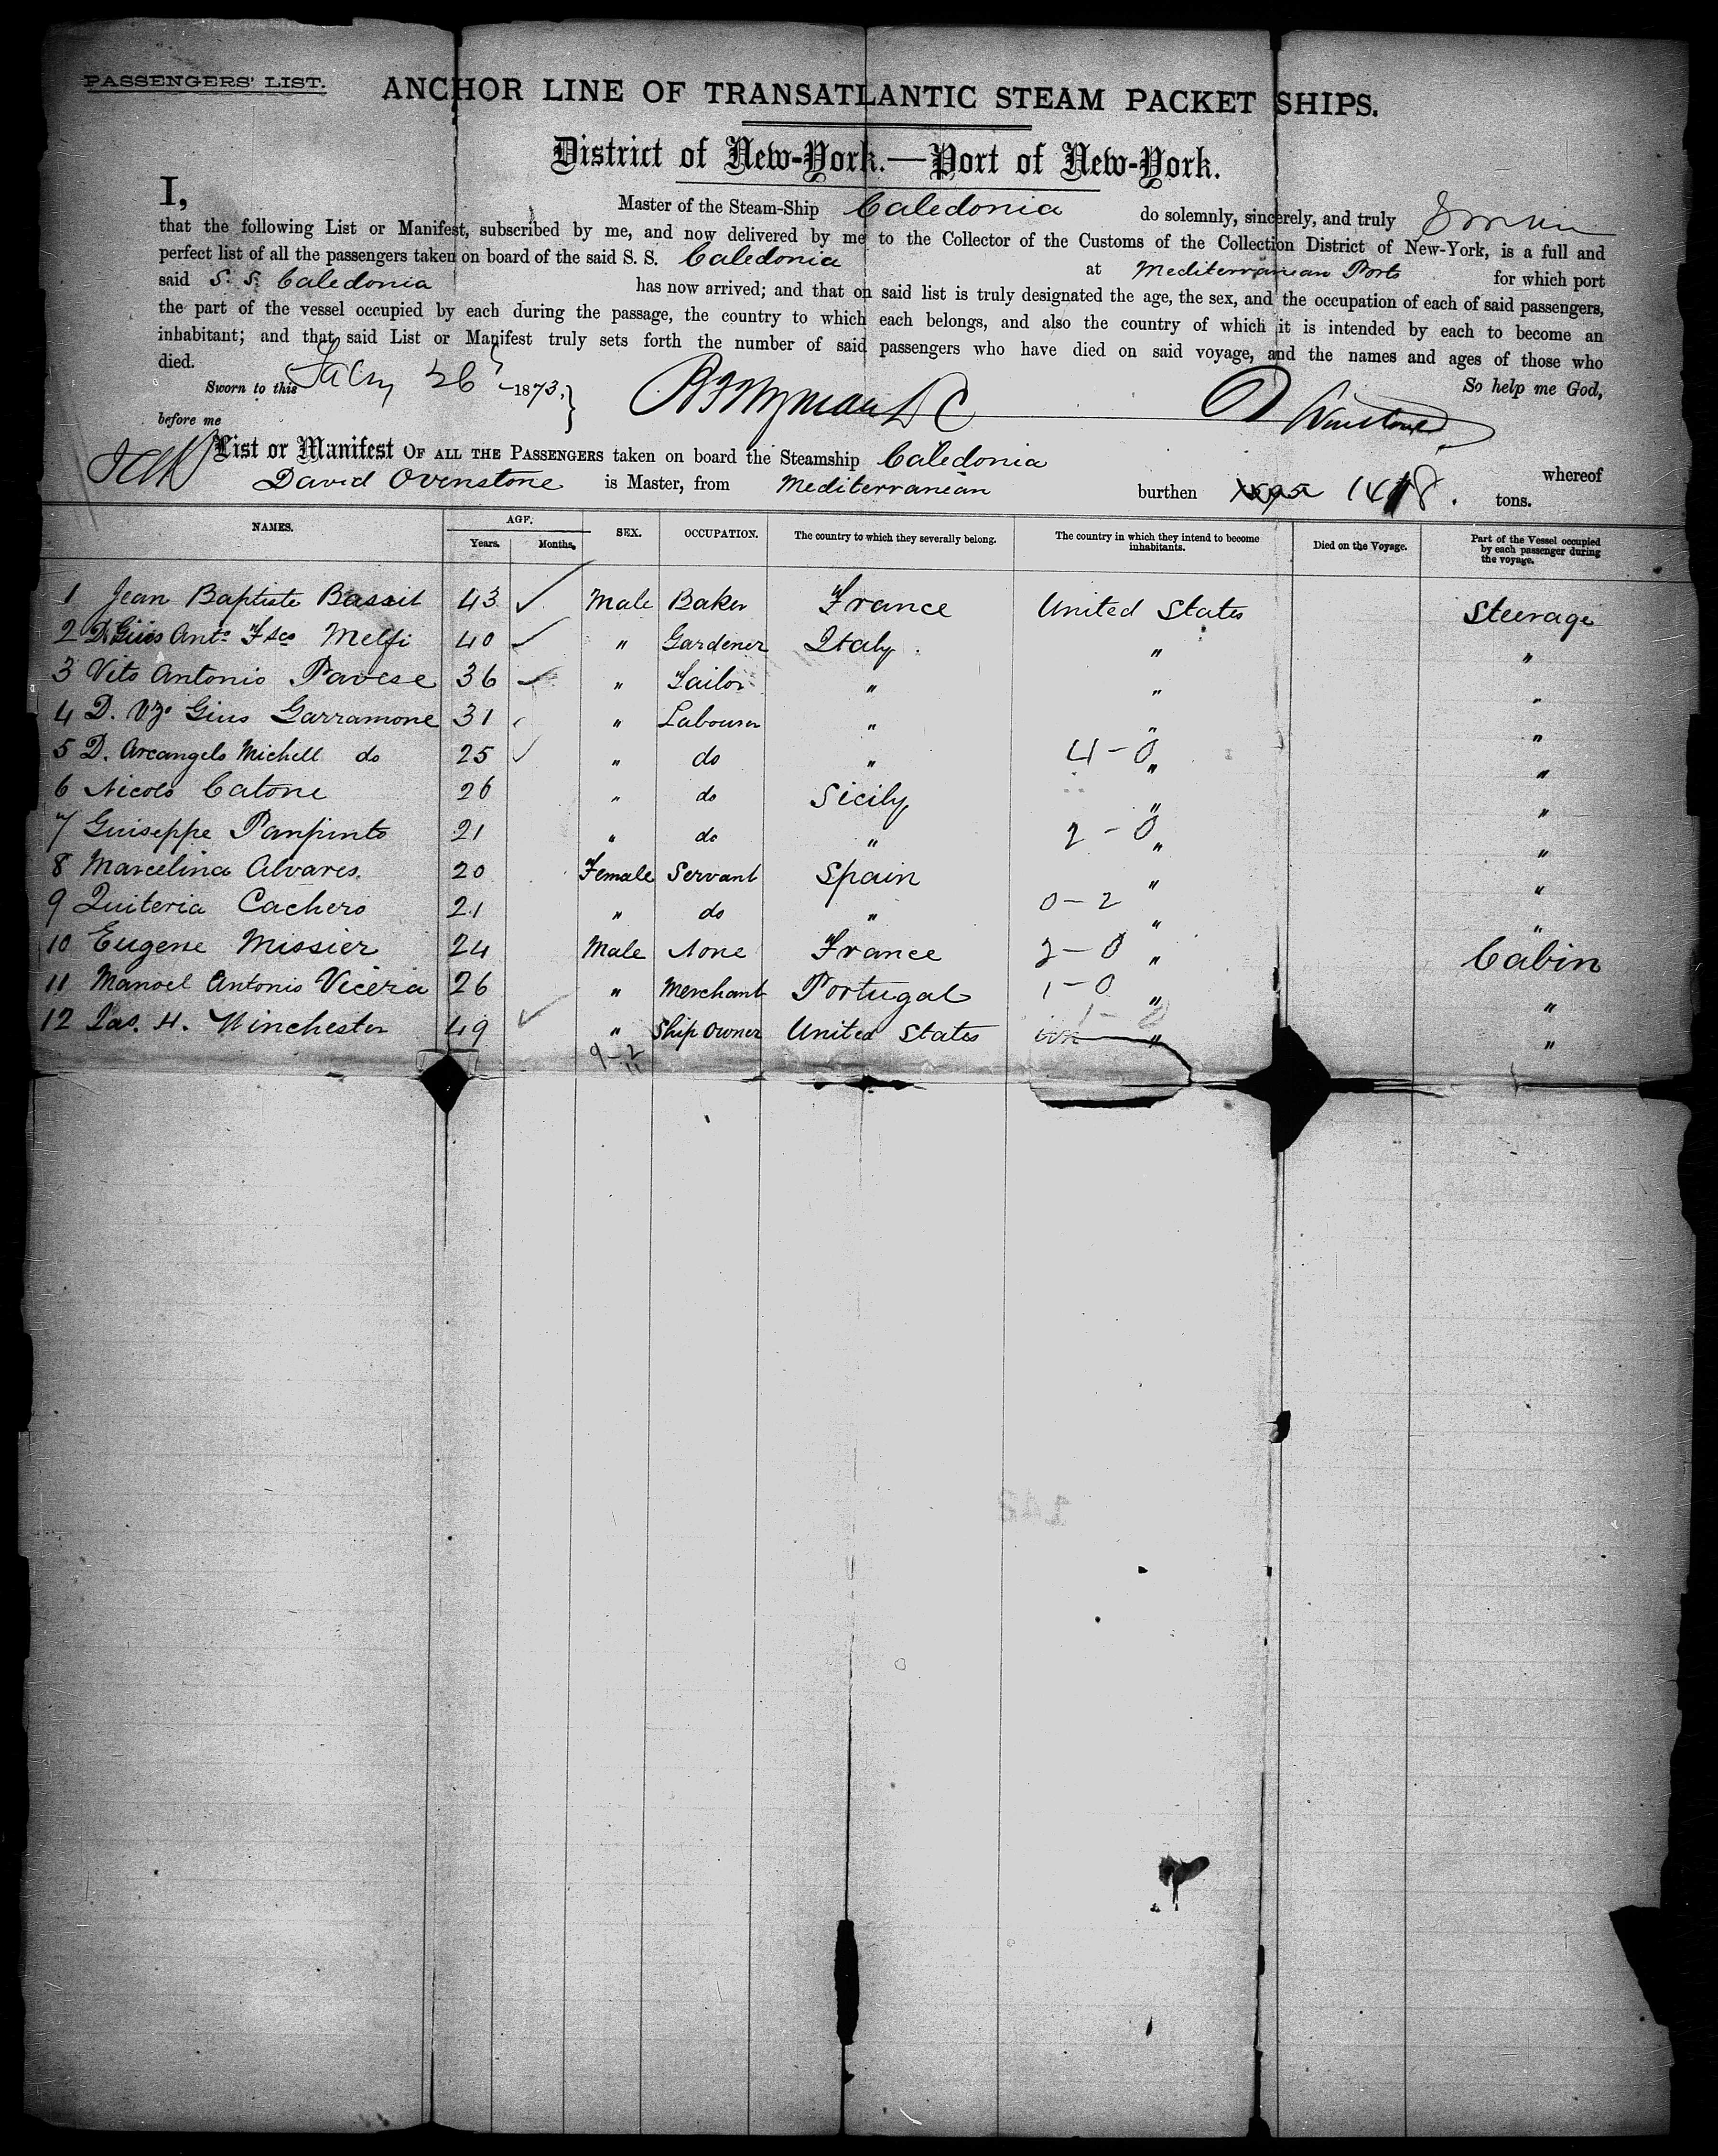 PASSENGERS' LIST.
ANCHOR LINE OF TRANSATLANTIC STEAM PACKET SHIPS.
District of New-York.—Port of New-York.
I, Master of the Steam-Ship Caledonia do solemnly, sincerely, and truly
that the following List or Manifest, subscribed by me, and now delivered by me to the Collector of the Customs of the Collection District of New-York, is a full and
perfect list of all the passengers taken on board of the said S. S. Caledonia at Mediterranean Ports for which port
said S. S. Caledonia has now arrived; and that on said list is truly designated the age, the sex, and the occupation of each of said passengers,
the part of the vessel occupied by each during the passage, the country to which each belongs, and also the country of which it is intended by each to become an
inhabitant; and that said List or Manifest truly sets forth the number of said passengers who have died on said voyage, and the names and ages of those who
died. So help me God,
Sworn to this 26 1873,
before me
List or Manifest OF ALL THE PASSENGERS taken on board the Steamship Caledonia whereof
David Ovenstone is Master, from Mediterranean burthen 1418. tons.
NAMES. AGE. SEX. OCCUPATION. The country to which they severally belong. The country in which they intend to become inhabitants. Died on the Voyage. Part of the Vessel occupied by each passenger during the voyage.
Years. Months.
1 Jean Baptiste Bassit 43 ✓ Male Baker France United States Steerage
2 Melfi 40 ✓ " Gardener Italy " "
3 Vito Antonio Pavese 36 ✓ " Tailor " " "
4 D. Vzo Gius Garramone 31 " Labourer " " "
5 D. Arcangelo Michell do 25 ✓ " do " 4-0 " "
6 Nicolo Catone 26 " do Sicily " "
7 Guiseppe Panpinto 21 " do " 2-0 " "
8 Marcelina Alvares. 20 Female Servant Spain " "
9 Quiteria Cachero 21 " do " 0-2 " "
10 Eugene Missier 24 Male None France 2-0 " Cabin
11 Manoel Antonio Viceria 26 " Merchant Portugal 1-0 " "
12 Jas. H. Winchester 49 ✓ " Ship owner United States " "
9-2
11